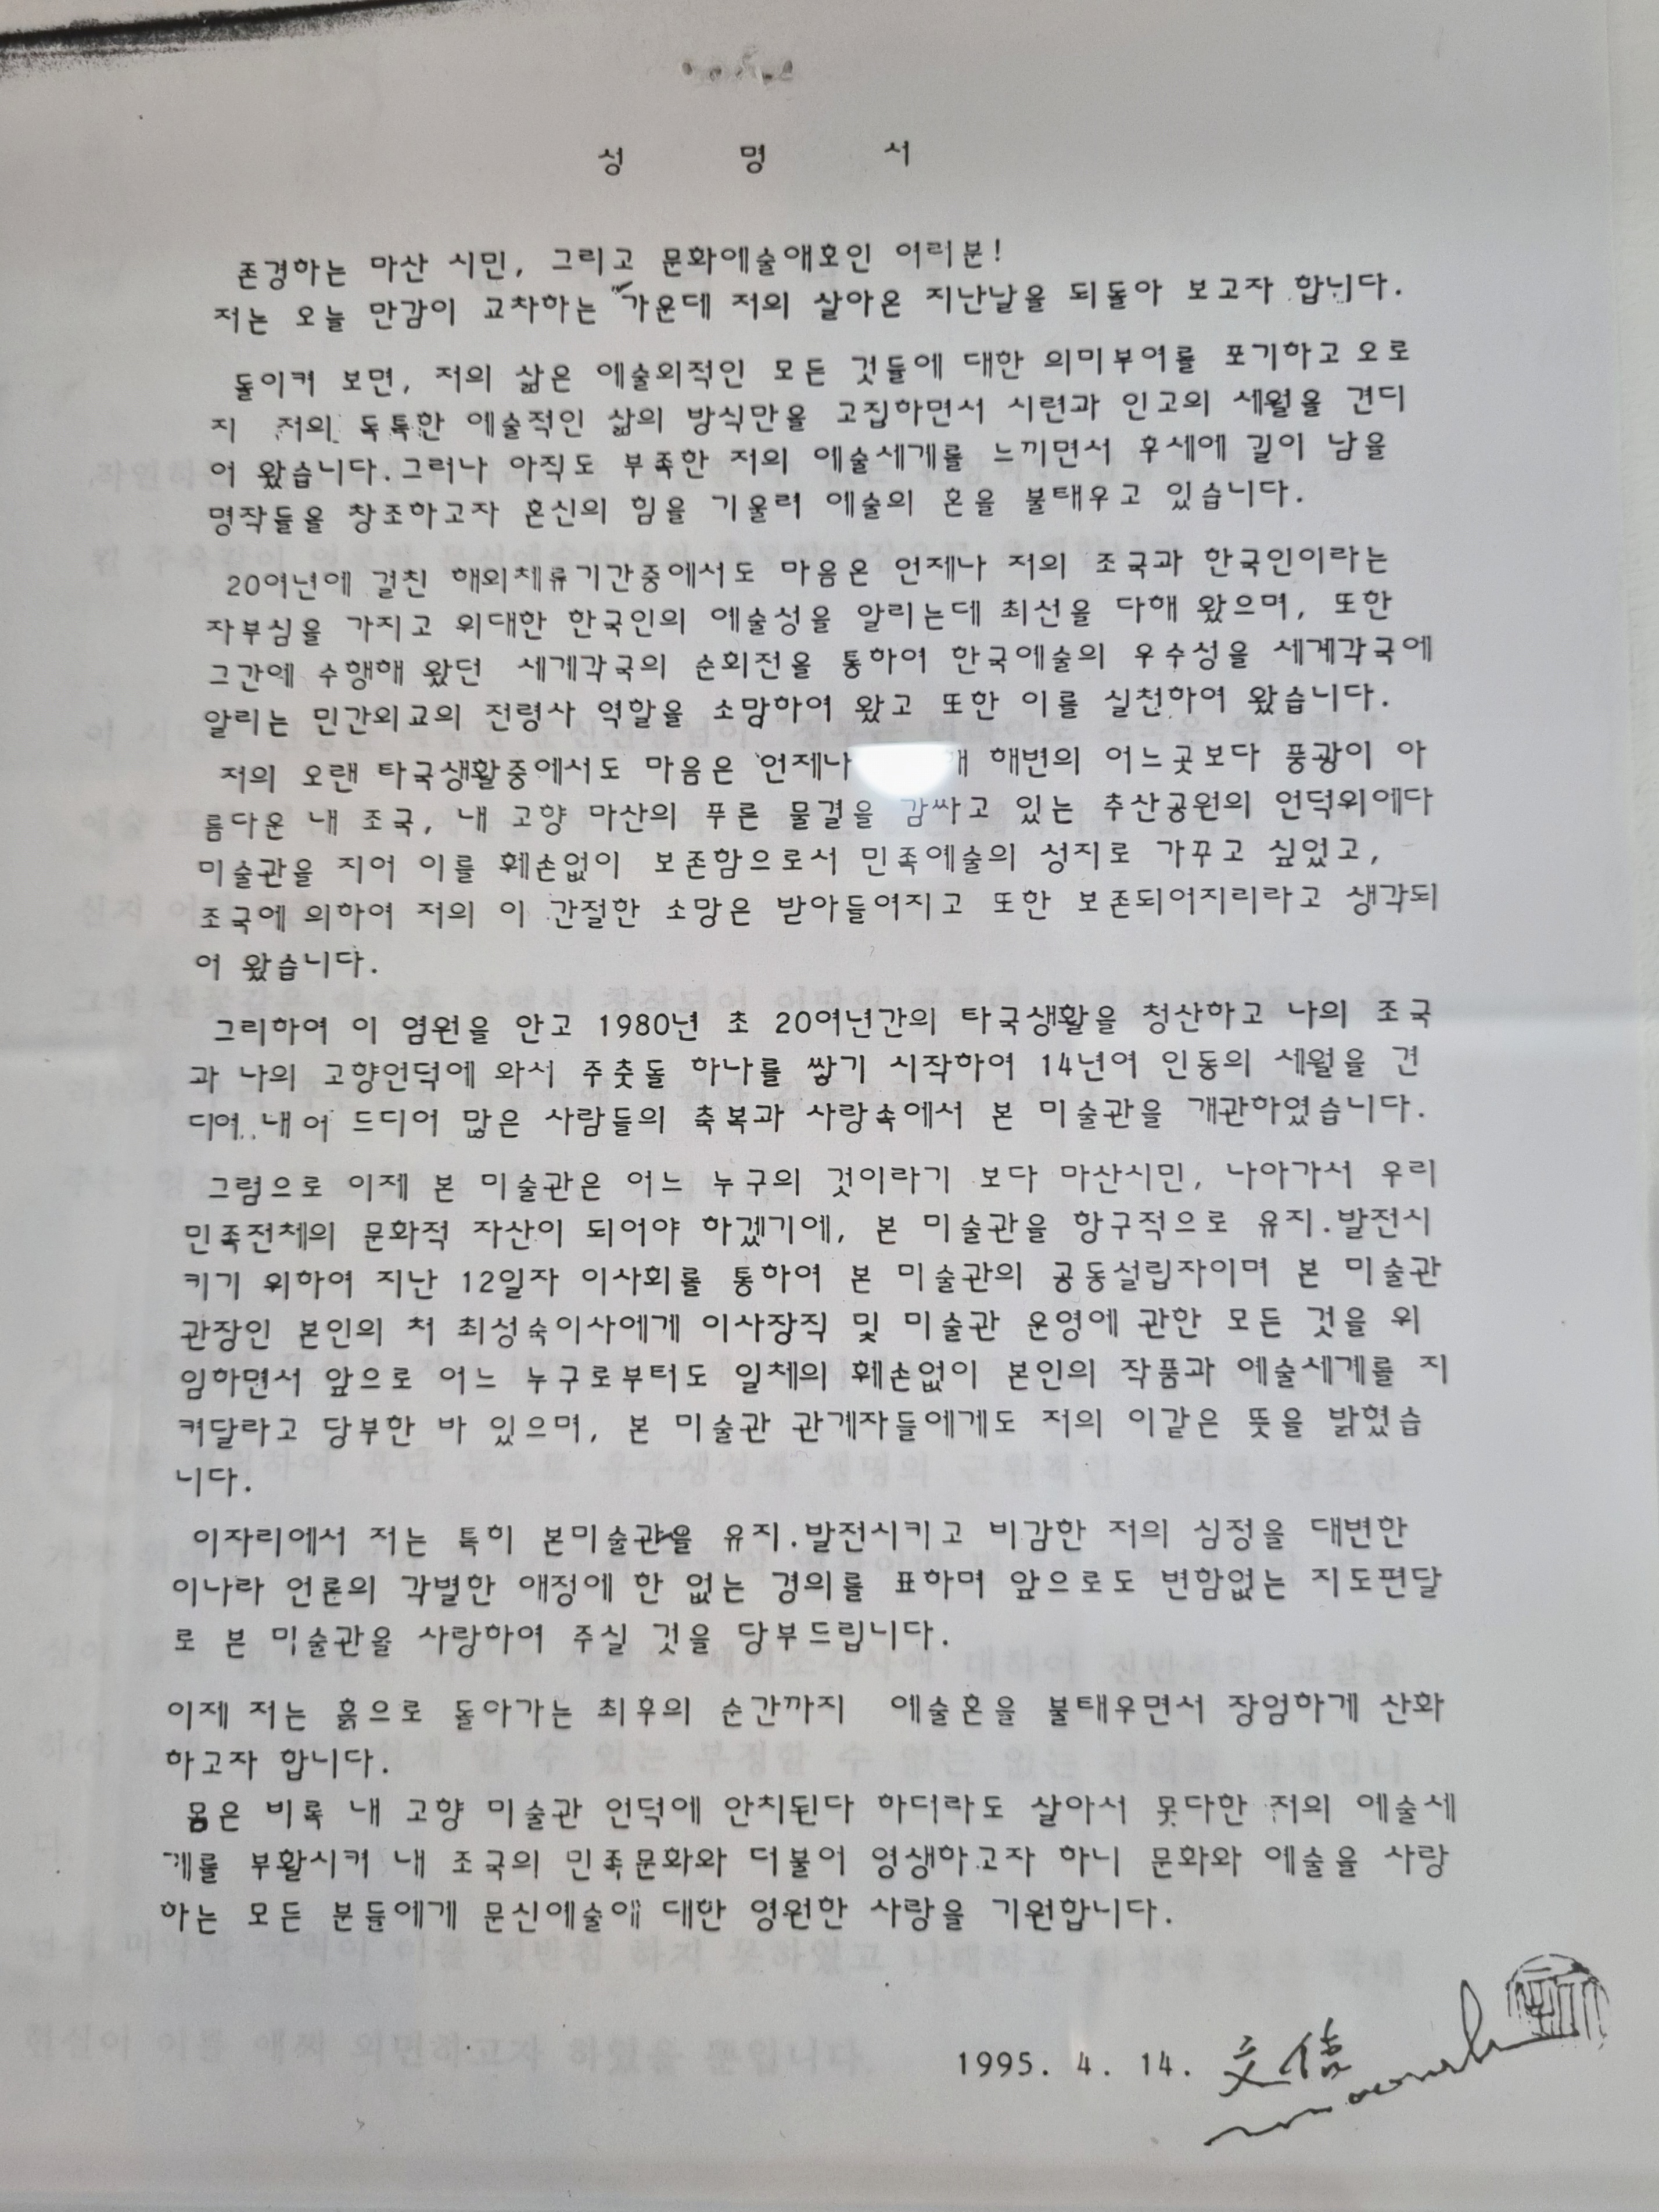 성 명 서
존경하는 마산 시민, 그리고 문화예술애호인 여러분!
저는 오늘 만감이 교차하는 가운데 저의 살아온 지난날을 되돌아 보고자 합니다.
돌이켜 보면, 저의 삶은 예술외적인 모든 것들에 대한 의미부여를 포기하고 오로
지 저의 독특한 예술적인 삶의 방식만을 고집하면서 시련과 인고의 세월을 견디
어 왔습니다.그러나 아직도 부족한 저의 예술세계를 느끼면서 후세에 길이 남을
명작들을 창조하고자 혼신의 힘을 기울려 예술의 혼을 불태우고 있습니다.
20여년에 걸친 해외체류기간중에서도 마음은 언제나 저의 조국과 한국인이라는
자부심을 가지고 위대한 한국인의 예술성을 알리는데 최선을 다해 왔으며, 또한
그간에 수행해 왔던 세계각국의 순회전을 통하여 한국예술의 우수성을 세계각국에
알리는 민간외교의 전령사 역할을 소망하여 왔고 또한 이를 실천하여 왔습니다.
저의 오랜 타국생활중에서도 마음은 언제나 해변의 어느곳보다 풍광이 아
름다운 내 조국, 내 고향 마산의 푸른 물결을 감싸고 있는 추산공원의 언덕위에다
미술관을 지어 이를 훼손없이 보존함으로서 민족예술의 성지로 가꾸고 싶었고,
조국에 의하여 저의 이 간절한 소망은 받아들여지고 또한 보존되어지리라고 생각되
어 왔습니다.
그리하여 이 염원을 안고 1980년 초 20여년간의 타국생활을 청산하고 나의 조국
과 나의 고향언덕에 와서 주춧돌 하나를 쌓기 시작하여 14년여 인동의 세월을 견
디여 내어 드디어 많은 사람들의 축복과 사랑속에서 본 미술관을 개관하였습니다.
그럼으로 이제 본 미술관은 어느 누구의 것이라기 보다 마산시민, 나아가서 우리
민족전체의 문화적 자산이 되어야 하겠기에, 본 미술관을 항구적으로 유지.발전시
키기 위하여 지난 12일자 이사회를 통하여 본 미술관의 공동설립자이며 본 미술관
관장인 본인의 처 최성숙이사에게 이사장직 및 미술관 운영에 관한 모든 것을 위
임하면서 앞으로 어느 누구로부터도 일체의 훼손없이 본인의 작품과 예술세계를 지
켜달라고 당부한 바 있으며, 본 미술관 관계자들에게도 저의 이같은 뜻을 밝혔습
니다.
이자리에서 저는 특히 본미술관을 유지.발전시키고 비감한 저의 심정을 대변한
이나라 언론의 각별한 애정에 한 없는 경의를 표하며 앞으로도 변함없는 지도편달
로 본 미술관을 사랑하여 주실 것을 당부드립니다.
이제 저는 흙으로 돌아가는 최후의 순간까지 예술혼을 불태우면서 장엄하게 산화
하고자 합니다.
몸은 비록 내 고향 미술관 언덕에 안치된다 하더라도 살아서 못다한 저의 예술세
계를 부활시켜 내 조국의 민족문화와 더불어 영생하고자 하니 문화와 예술을 사랑
하는 모든 분들에게 문신예술에 대한 영원한 사랑을 기원합니다.
1995. 4. 14. 文信